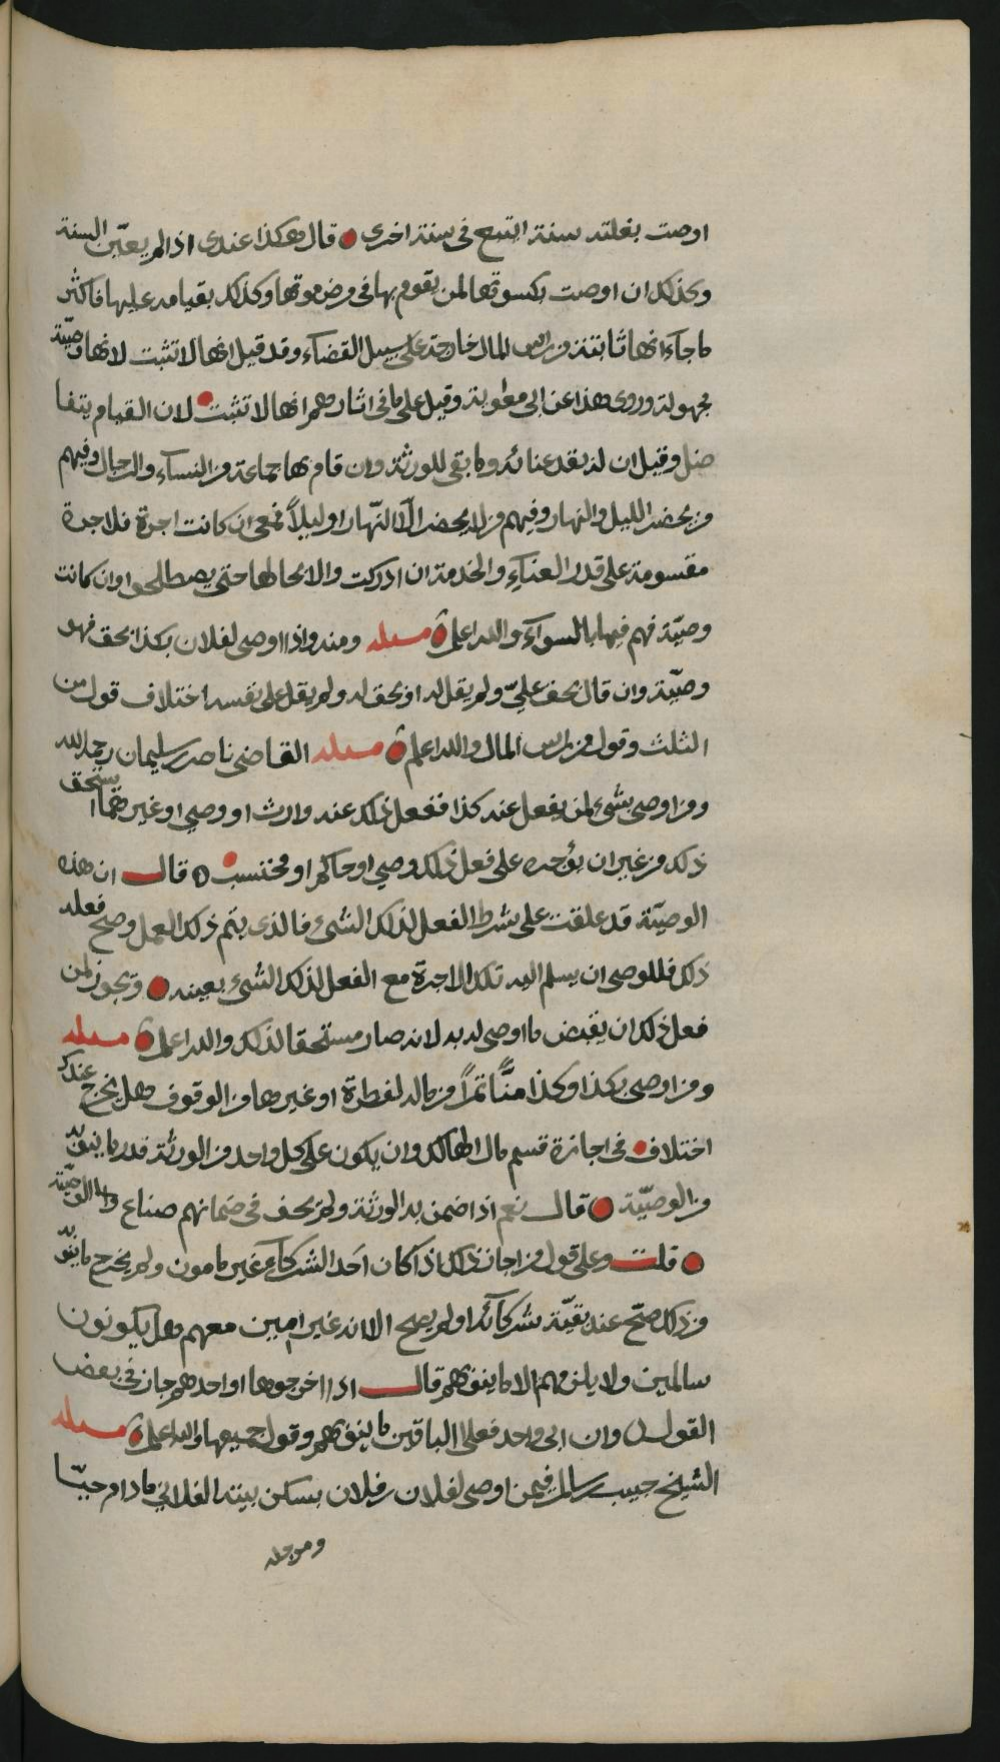 اوصت بغلته سنة اتبيع في سنة اخرى قال هكذا عندي اذا لم يعيّن السنة
وكذلك ان اوصت بكسوتها لمن يقوم بها في مرض موتها وكذلك بقيامه عليها فاكثر
ما جاء انها ثابتة من راس المال خارجة على سبيل القضاء وقد قيل انها لا تثبت لانها وصيّة
مجهولة وروي هذا عن ابي معاوية وقيل على ما في اثارهم انها لا تثبت لان القيام يتفا
ضل وقيل ان له بقدر عنائه وما بقي للورثة وان قام بها جماعة من النساء والرجال وفيهم
من يحضر الليل والنهار وفيهم من لا يحضر الّا النّهار او ليلاً فمعي ان كانت اجرة فلاجرة
مقسومة على قدر العناء والخدمة ان ادركت والا بحالها حتى يصطلحوا وان كانت
وصيّة فهم فيها بالسواء والله اعلم مسئله ومنه واذا اوصى لفلان بكذا بحق فهو
وصيّة وان قال بحق عليّ ولم يقل له او بحق له ولم يقل على نفسه اختلاف قول من
الثلث وقول من راس المال والله اعلم مسئله القاضي ناصر بن سليمان رحمه الله
ومن اوصى بشيء لمن يفعل عنه كذا ففعل ذلك عنه وارث او وصي او غيرهما ايستحق
ذلك من غير ان يؤجره على فعل ذلك وصي او حاكم او محتسب قال ان هذه
الوصيّة قد علقت على شرط الفعل لذلك الشيء فالذي يتم ذلك العمل وصح فعله
ذلك فللوصي ان يسلم اليه تلك الاجرة مع الفعل لذلك الشيء بعينه ويجوز لمن
فعل ذلك ان يقبض ما اوصي له به لانه صار مستحقا لذلك والله اعلم مسئله
ومن اوصى بكذا وكذا منًّا تمراً من ماله لفطرة او غيرها من الوقوف وهل يخرج عندك
اختلاف في اجازة قسم مال الهالك وان يكون على كل واحد من الورثة قدر ما ينوبه
من الوصيّة قال نعم اذا ضمن به الورثة ولم يخف في ضمانهم ضياع الوصيّة
قلت وعلى قول من اجاز ذلك اذا كان احد الشركاء غير مامون ولم يخرج ما ينوبه
من ذلك صحّ عند بقيّة شركائه او لم يصح الا انه غير امين معهم هل يكونون
سالمين ولا يلزمهم الا ما ينوبهم قال اذا اخرجوها او احدهم جاز في بعض
القول وان ابى واحد فعلى الباقين ما ينوبهم وقول جميعها والله اعلم مسئله
الشيخ حبيب بن سالم فيمن اوصى لفلان بن فلان بسكن بيته الفلاني ما دام حيّا